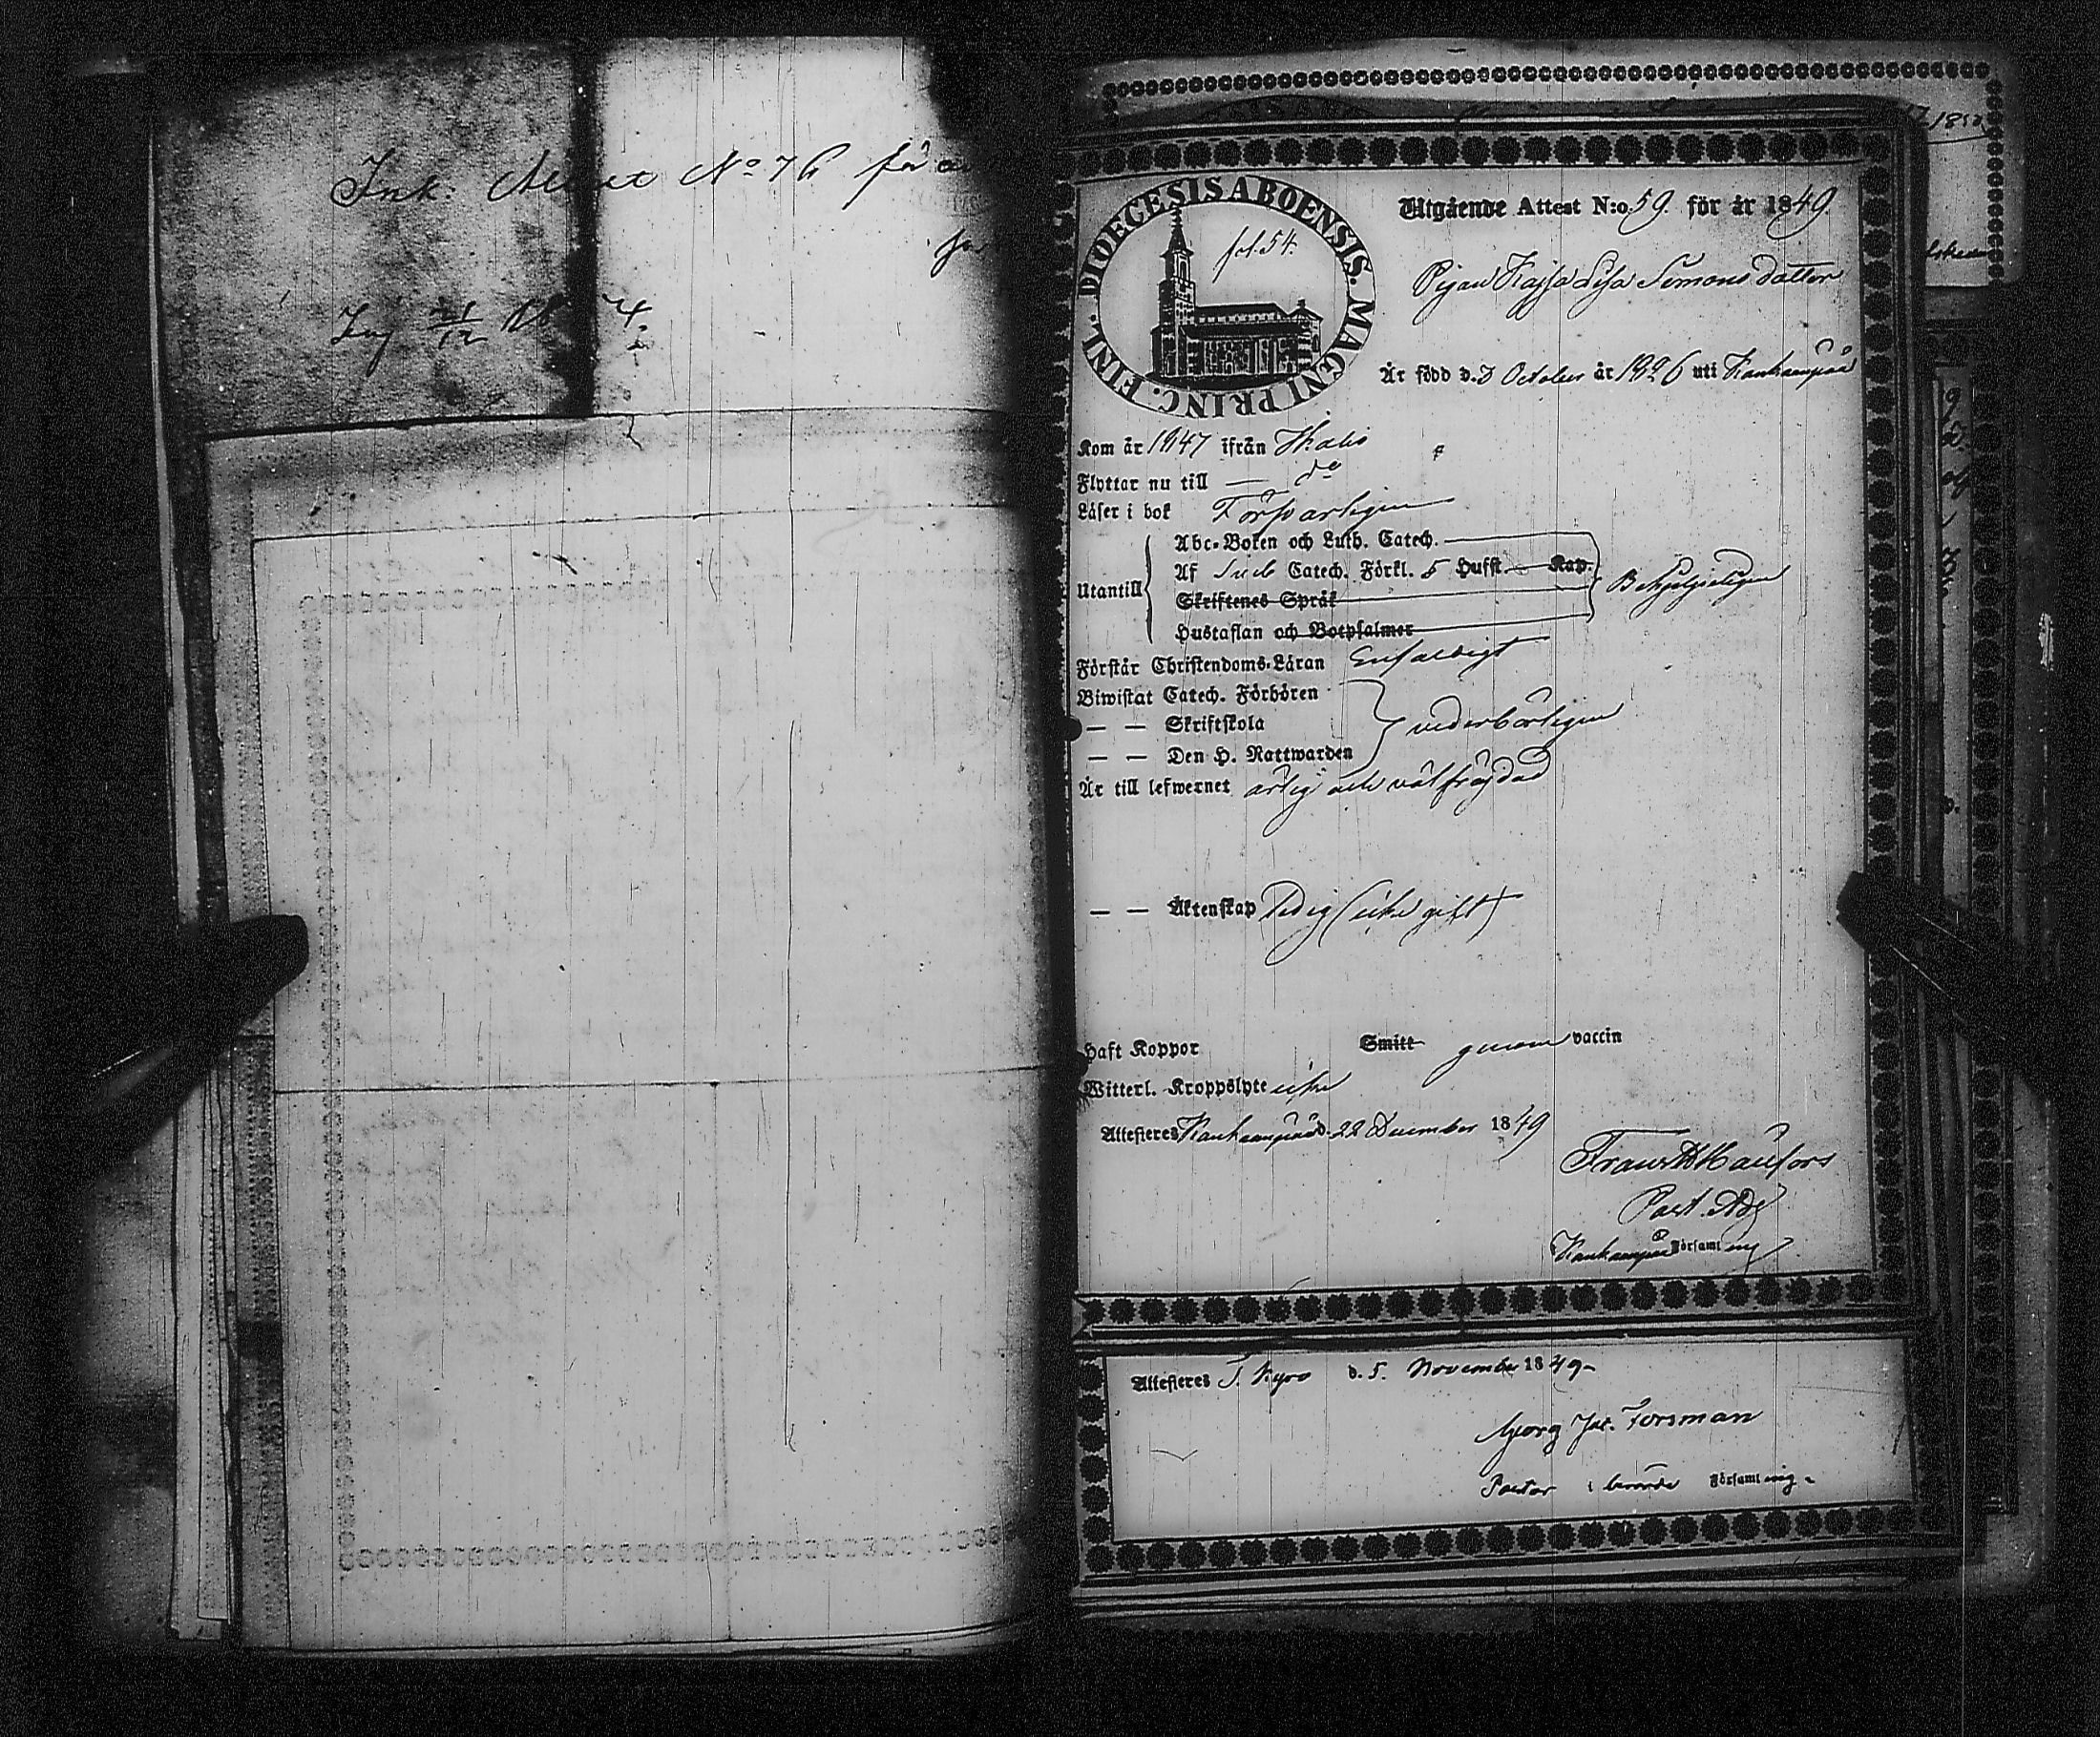 Ink. Attest No 76 för
för
Ing 21/12
DIOECESIS ABOENSIS. MAGNI PRINC. FINL.
fol. 54.
Utgående Attest N:o 59. för år 1849.
Pigan Kajsa Lisa Simons dotter
Är född d. 3 October år 1826 uti Kankaanpää
Kom år 1847 ifrån Ikalis
Flyttar nu till — do
Läser i bok Försvarligen
Utantill
Abc-Boken och Luth. Catech.
Af Sveb Catech. Förkl. 5 Hufst. Kap.
Skriftenes Språk
Hustaflan och Botpsalmer
Behjelpeligen
Förstår Christendoms-Läran Enfaldigt
Biwistat Catech. Förhören
— — Skriftskola
— — Den H. Nattwarden
vederbörligen
Är till lefwernet ärlig och välfräjdad
— — Äktenskap Ledig (icke gift)
Haft Koppor Smitt genom vaccin
Witterl. Kroppslyte icke
Attesteres Kankaanpää d. 22 December 1849
Past. Adj
Kankaanpää Församling
Attesteres T. Kyro d. 5. November 1849-
Georg Jac. Forsman
Pastor i berörde Församling.